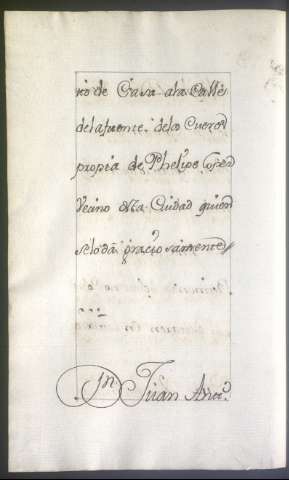 rio de Casa ala Calle
dela fuente. delos Cueros
propia de Phelipe
Vecino desta Ciudad quien
selo da graciosamente
Jn Juan Antt.